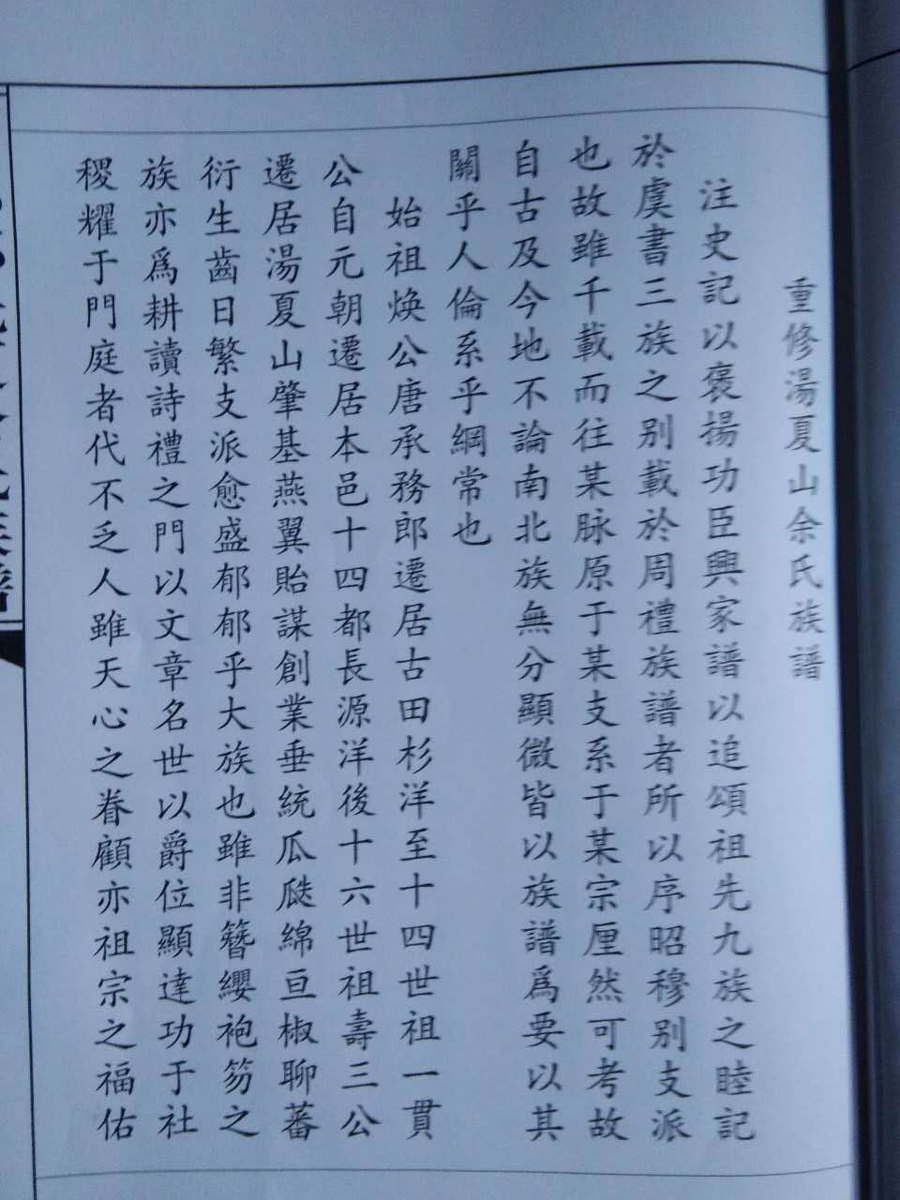 重修湯夏山余氏族譜
注史記以褒揚功臣興家譜以追頌祖先九族之睦記
於虞書三族之別載於周禮族譜者所以序昭穆別支派
也故雖千載而往某脉原于某支系于某宗厘然可考故
自古及今地不論南北族無分顯微皆以族譜爲要以其
關乎人倫系乎綱常也
始祖焕公唐承務郎遷居古田杉洋至十四世祖一貫
公自元朝遷居本邑十四都長源洋後十六世祖壽三公
遷居湯夏山肇基燕翼貽謀創業垂統瓜瓞綿亘椒聊蕃
衍生齒日繁支派愈盛郁郁乎大族也雖非簪纓袍笏之
族亦爲耕讀詩禮之門以文章名世以爵位顯達功于社
稷耀于門庭者代不乏人雖天心之眷顧亦祖宗之福佑